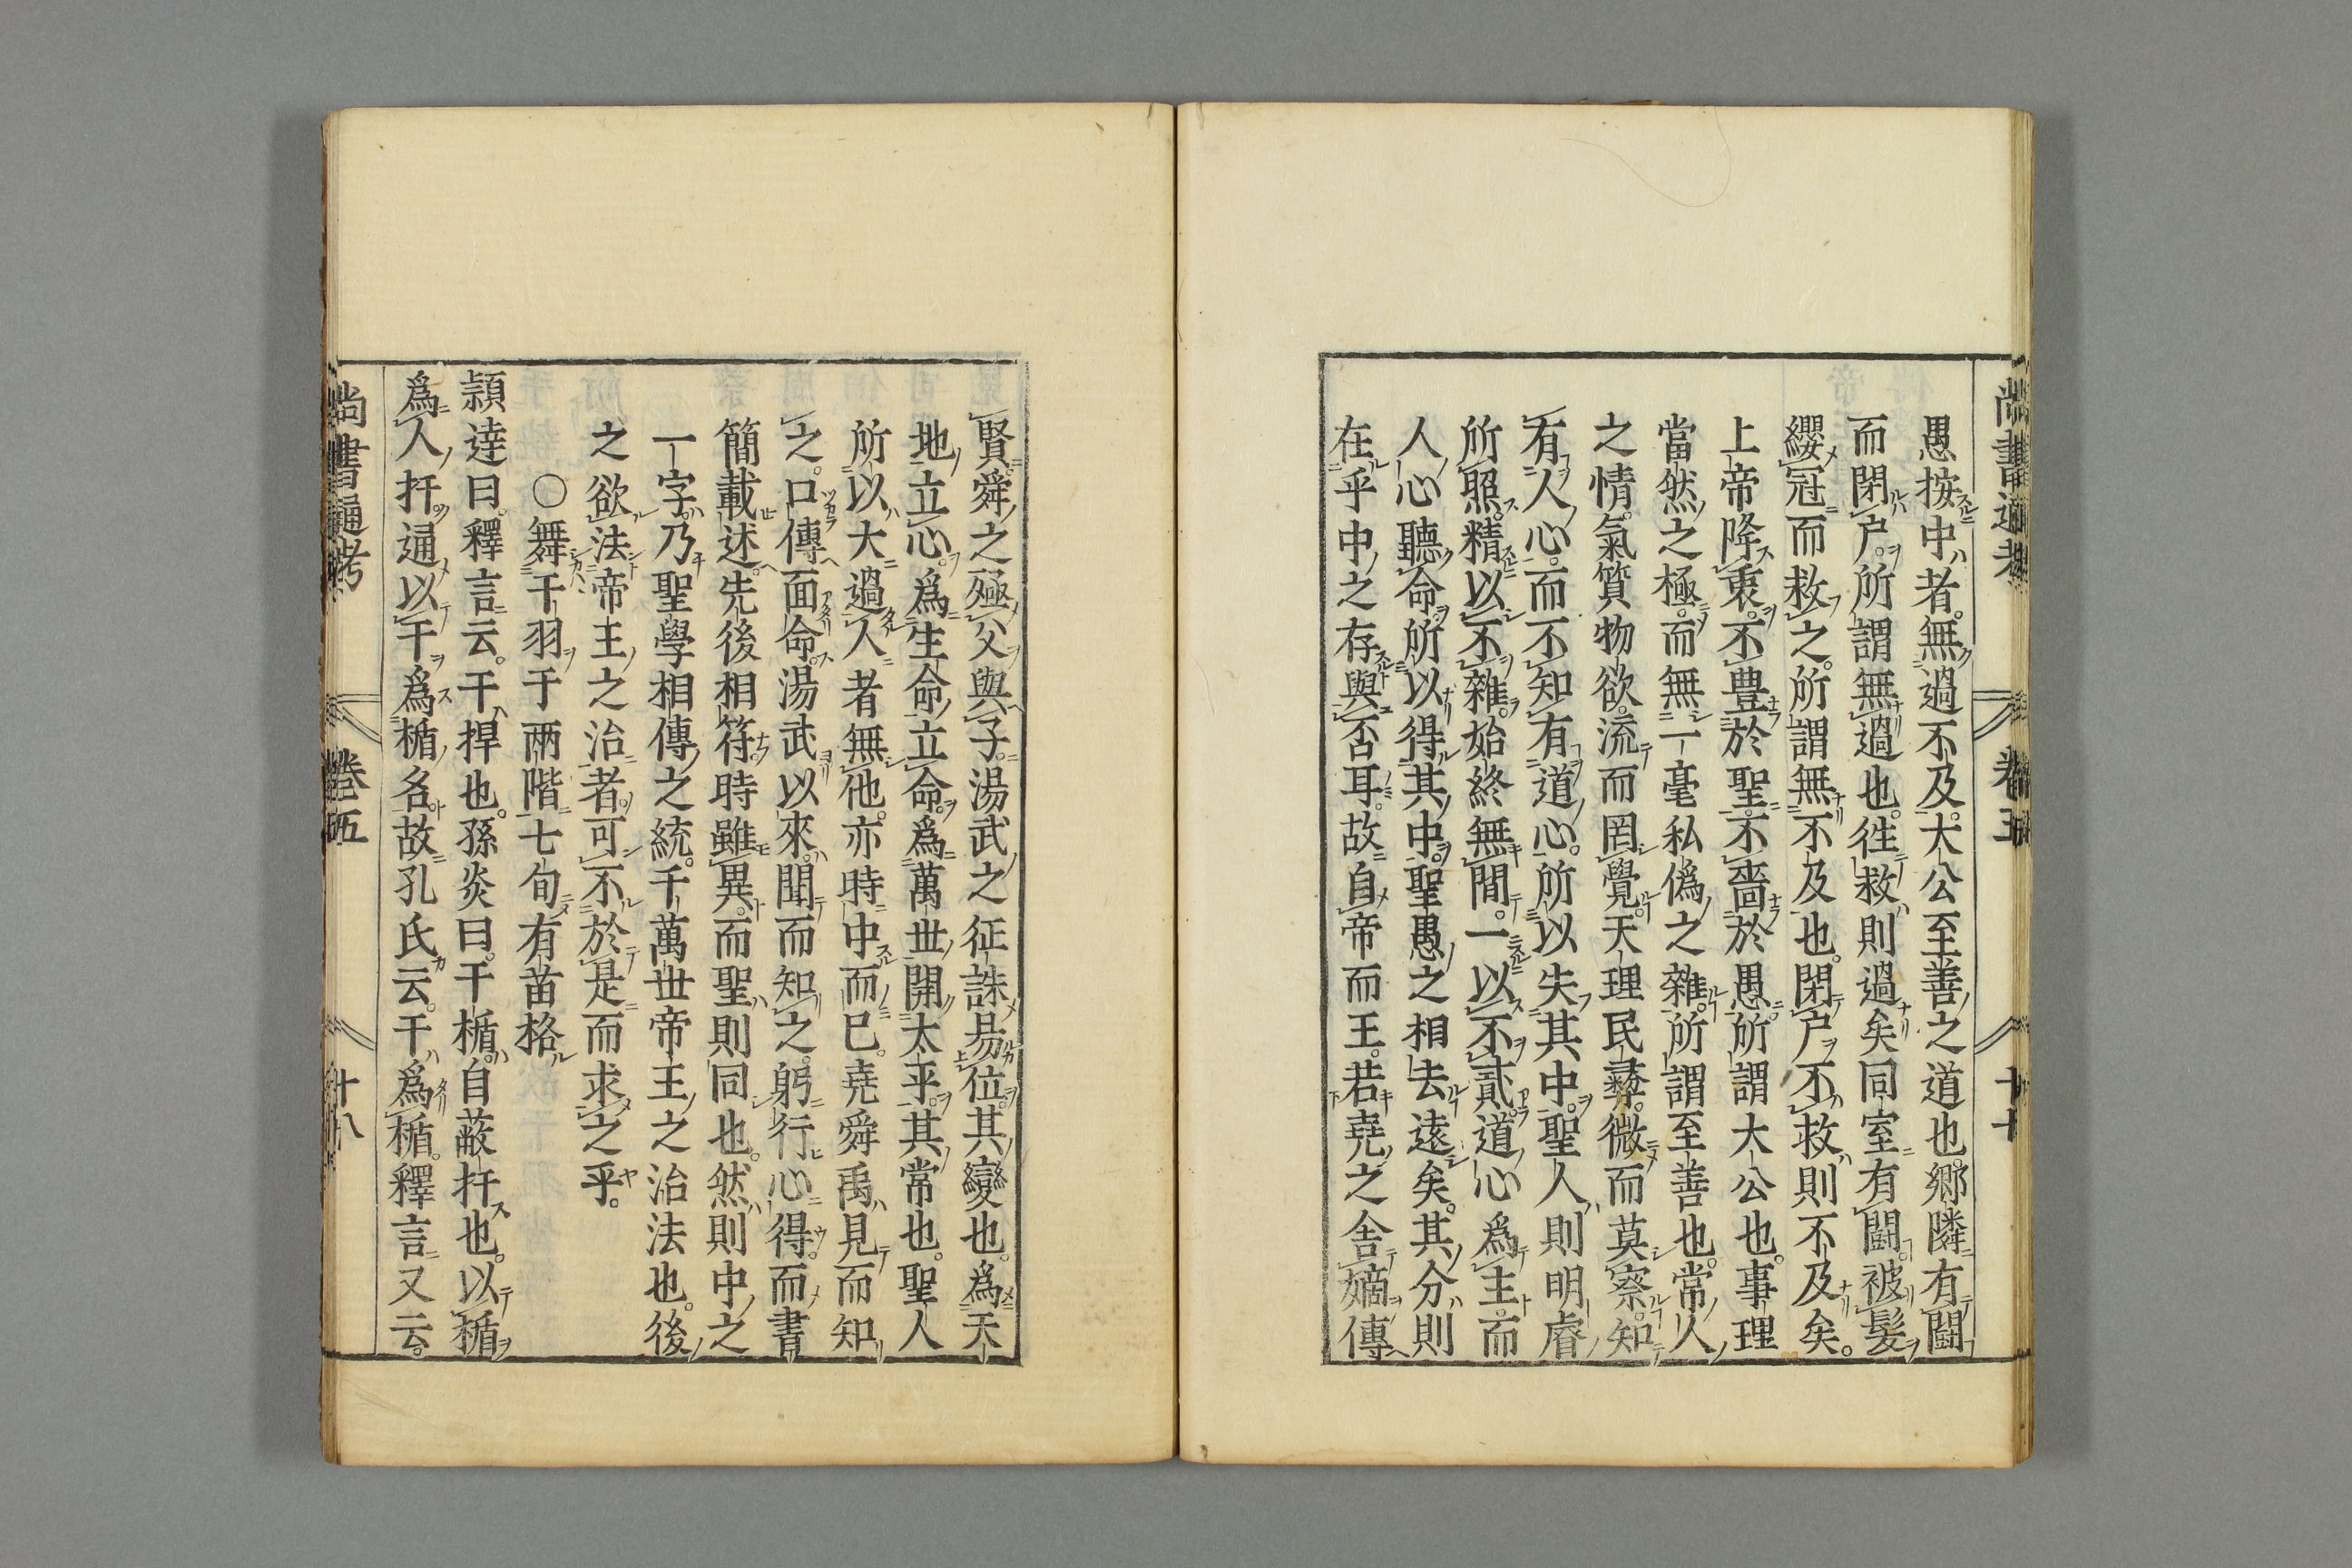 愚按中者。無過不及。大公至善之道也。鄉隣有鬪
而閉户。所謂無過也。徃救則過矣同室有鬪。被髮
纓冠而救之。所謂無不及也。閉户不救則不及矣。
上帝降衷。不豊於聖。不嗇於愚。所謂大公也。事理
當然之極。而無一毫私僞之雜。所謂至善也。常人
之情。氣質物欲。流而罔覺。天理民彝。微而莫察。知
有人心。而不知有道心。所以失其中。聖人則明睿
所照。精以不雜。始終無間。一以不貳。道心爲主。而
人心聽命。所以得其中。聖愚之相去遠矣。其分則
在乎中之存與否耳。故自帝而王。若堯之舍嫡傳
賢。舜之殛父與子。湯武之征誅易位。其變也。爲天
地立心。爲生命立命。爲萬世開太平。其常也。聖人
所以大過人者無他。亦時中而已。堯舜禹見而知
之。口傳面命。湯武以來。聞而知之。躬行心得。而書
簡載述。先後相符。時雖異。而聖則同也。然則中之
一字。乃聖學相傳之統。千萬世帝王之治法也。後
之欲法帝王之治者。可不於是而求之乎。
○舞干羽于兩階七旬有苗格
頴達曰。釋言云。干捍也。孫炎曰。干楯。自蔽扞也。以楯
爲人扞通以干爲楯名。故孔氏云。干爲楯。釋言又云。
尚書通考 卷五 十八